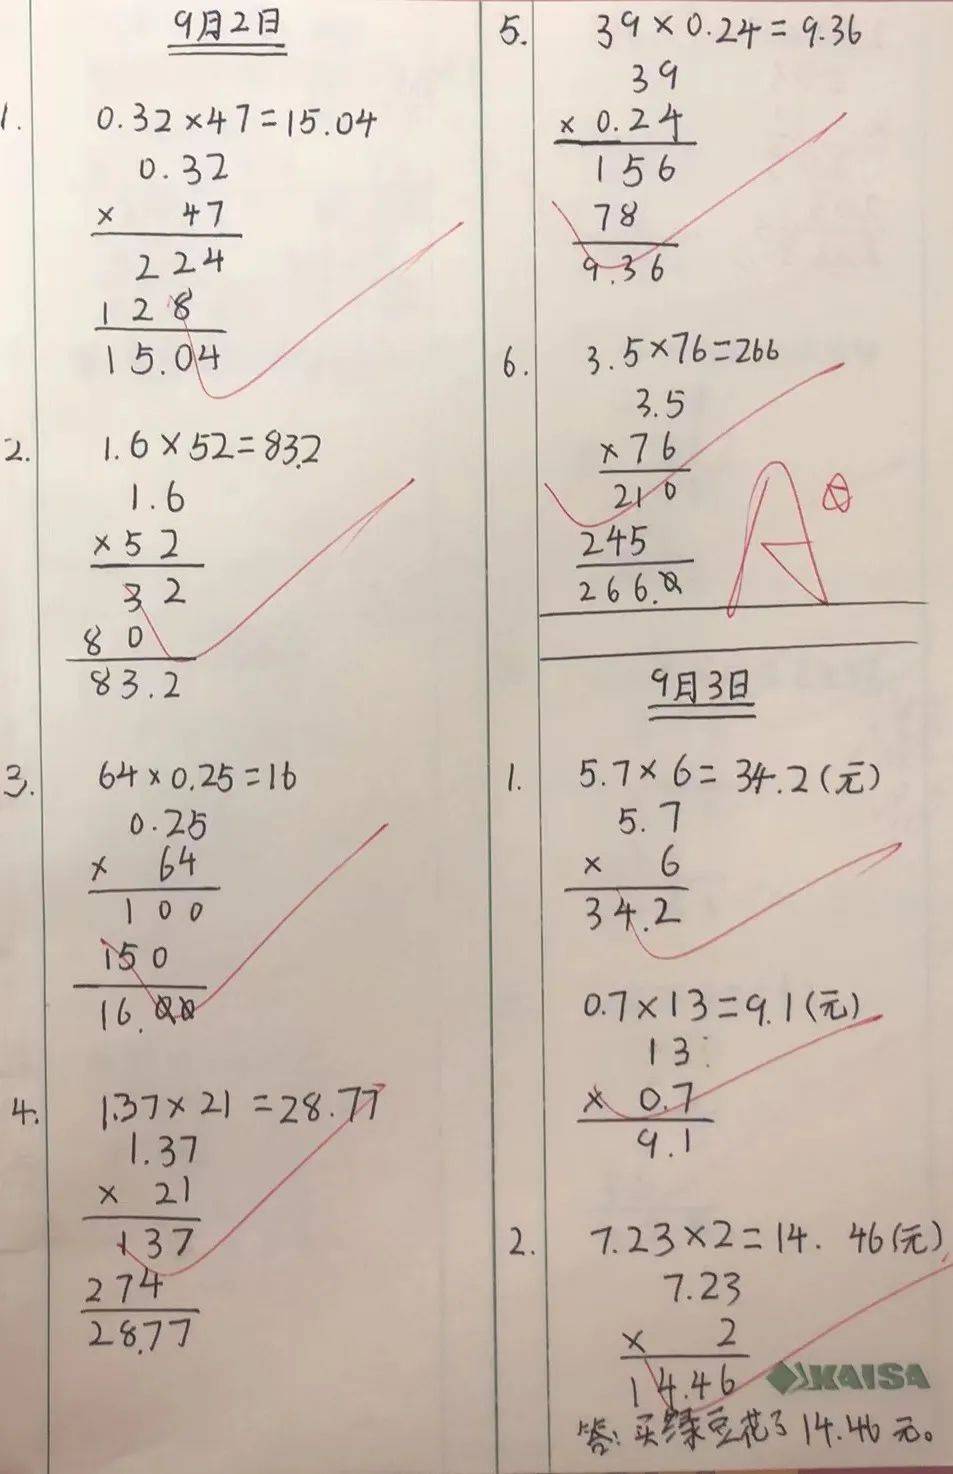 9月2日
1. 0.32×47=15.04
0.32
× 47
224
128
15.04
2. 1.6×52=83.2
1.6
×52
32
80
83.2
3. 64×0.25=16
0.25
× 64
100
150
16.00
4. 1.37×21=28.77
1.37
× 21
137
274
28.77
5. 39×0.24=9.36
39
× 0.24
156
78
9.36
6. 3.5×76=266
3.5
×76
210
245
266.0
A
9月3日
1. 5.7×6=34.2(元)
5.7
× 6
34.2
0.7×13=9.1(元)
13
× 0.7
9.1
2. 7.23×2=14.46(元)
7.23
× 2
14.46
KAISA
答:买绿豆花了14.46元。